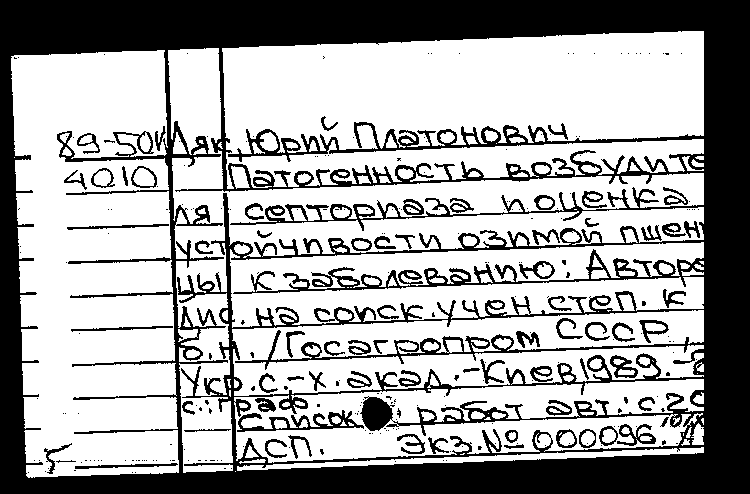 89-50К Дяк, Юрий Платонович
4010 Патогенность возбудите
ля септориаза и оценка
устойчивости озимой пшен
цы к заболеванию: Авторе
дис. на соиск. учен. степ. к
б.н. / Госагропром СССР,
Укр. с.-х. акад. - Киев, 1989. -
с.: граф.
Список работ авт.: с. 20
ДСП. Экз. № 000096.
5